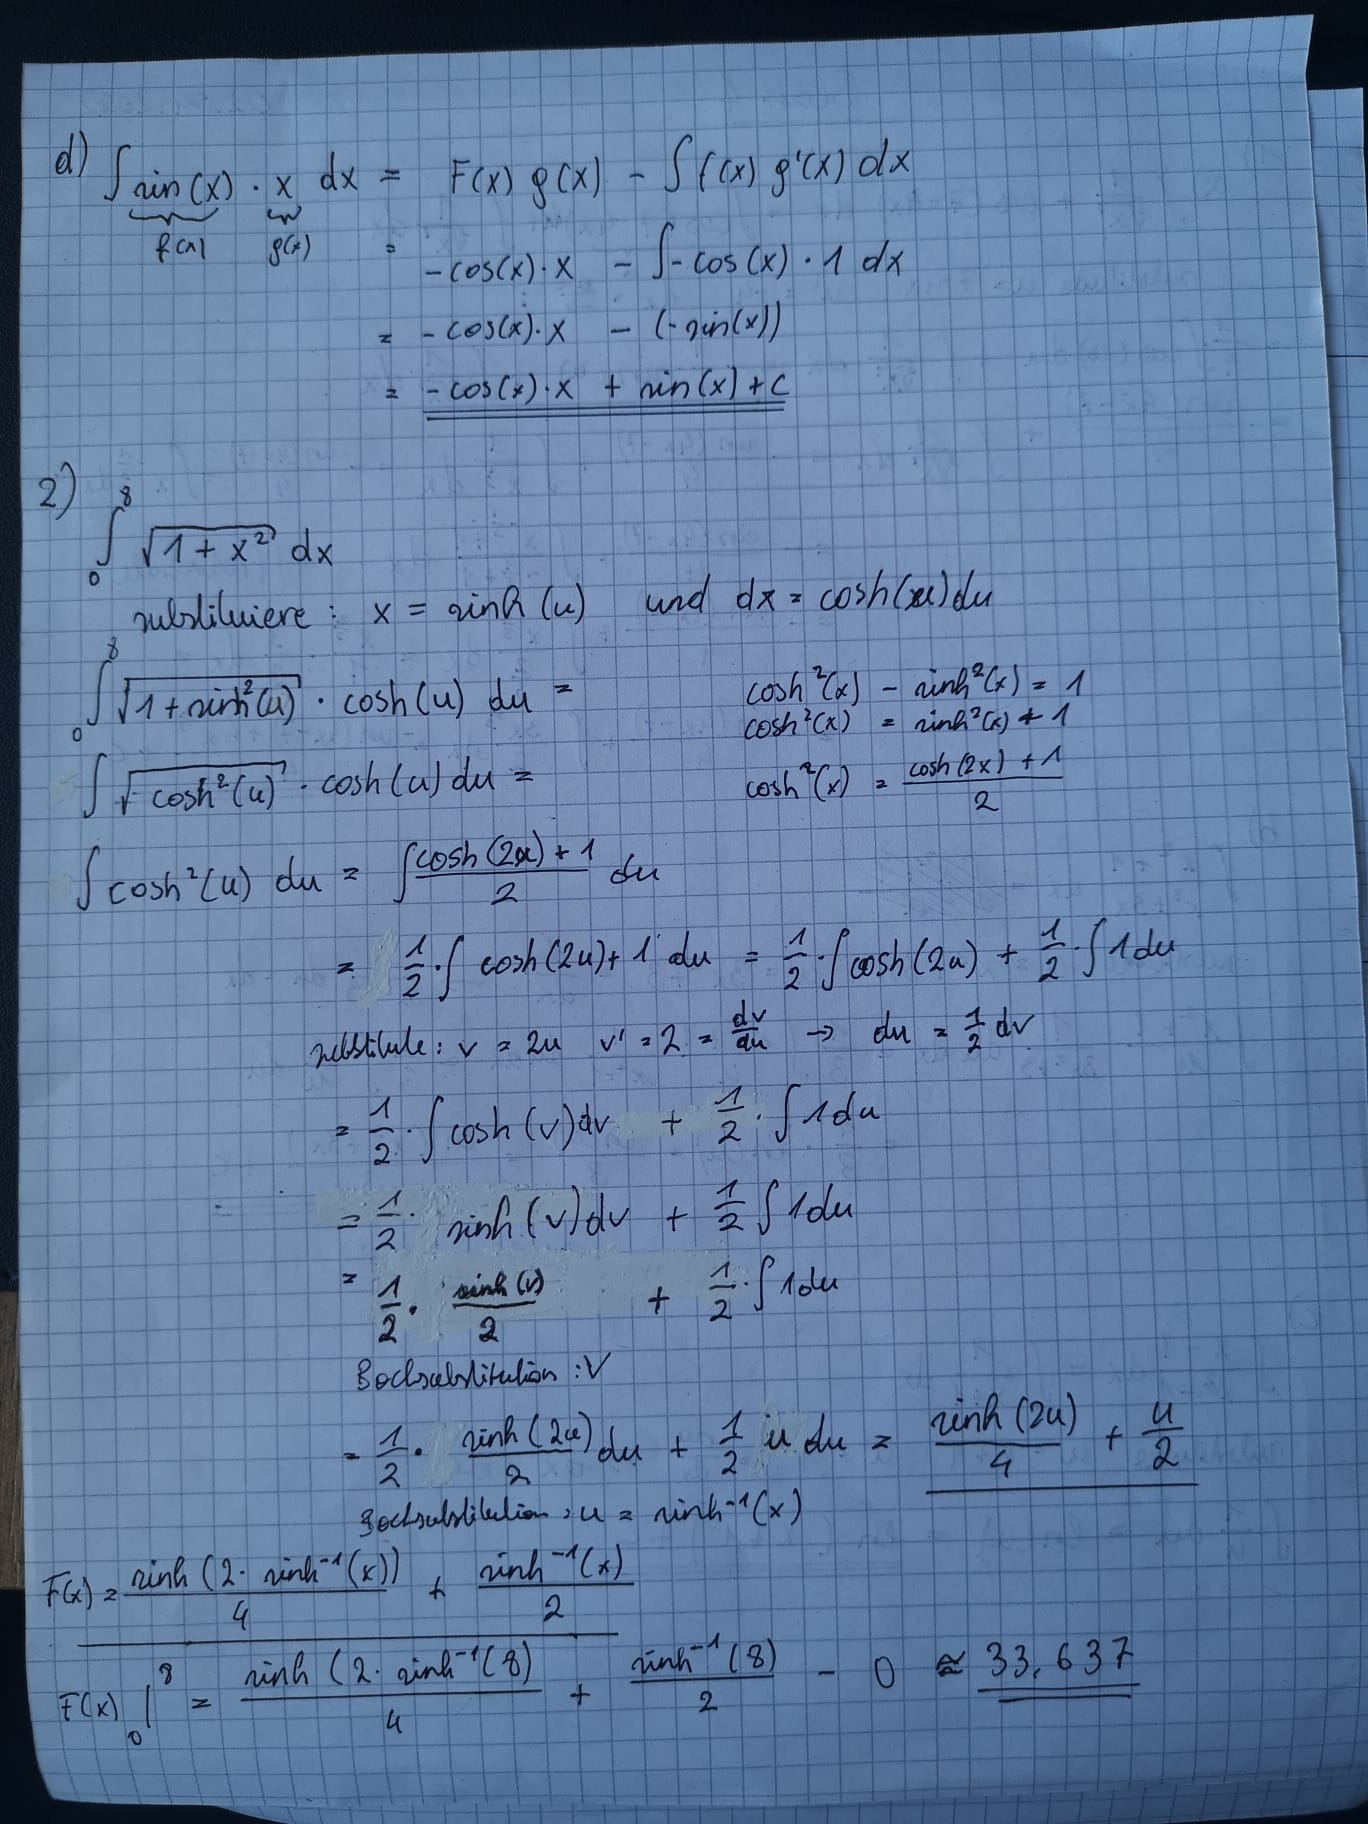 d) ∫ sin(x) · x dx = F(x) g(x) - ∫ f(x) g'(x) dx
f(x) g(x)
= -cos(x)·x - ∫-cos(x)·1 dx
= -cos(x)·x - (-sin(x))
= -cos(x)·x + sin(x) + C
2)
∫₀⁸ √(1+x²) dx
substituiere: x = sinh(u) und dx = cosh(u) du
∫₀⁸ √(1+sinh²(u)) · cosh(u) du = cosh²(x) - sinh²(x) = 1
cosh²(x) = sinh²(x) + 1
∫ √(cosh²(u)) · cosh(u) du = cosh²(x) = (cosh(2x)+1)/2
∫ cosh²(u) du = ∫ (cosh(2u)+1)/2 du
= 1/2 · ∫ cosh(2u)+1 du = 1/2 · ∫ cosh(2u) + 1/2 · ∫ 1 du
substitute: v = 2u v' = 2 = dv/du → du = 1/2 dv
= 1/2 · ∫ cosh(v) dv + 1/2 · ∫ 1 du
= 1/2 · sinh(v) dv + 1/2 ∫ 1 du
= 1/2 · sinh(v)/2 + 1/2 · ∫ 1 du
Backsubstitution: V
= 1/2 · sinh(2u)/2 du + 1/2 u du = sinh(2u)/4 + u/2
Backsubstitution: u = sinh⁻¹(x)
F(x) = sinh(2·sinh⁻¹(x))/4 + sinh⁻¹(x)/2
F(x) |₀⁸ = sinh(2·sinh⁻¹(8)/4 + sinh⁻¹(8)/2 - 0 ≈ 33,637